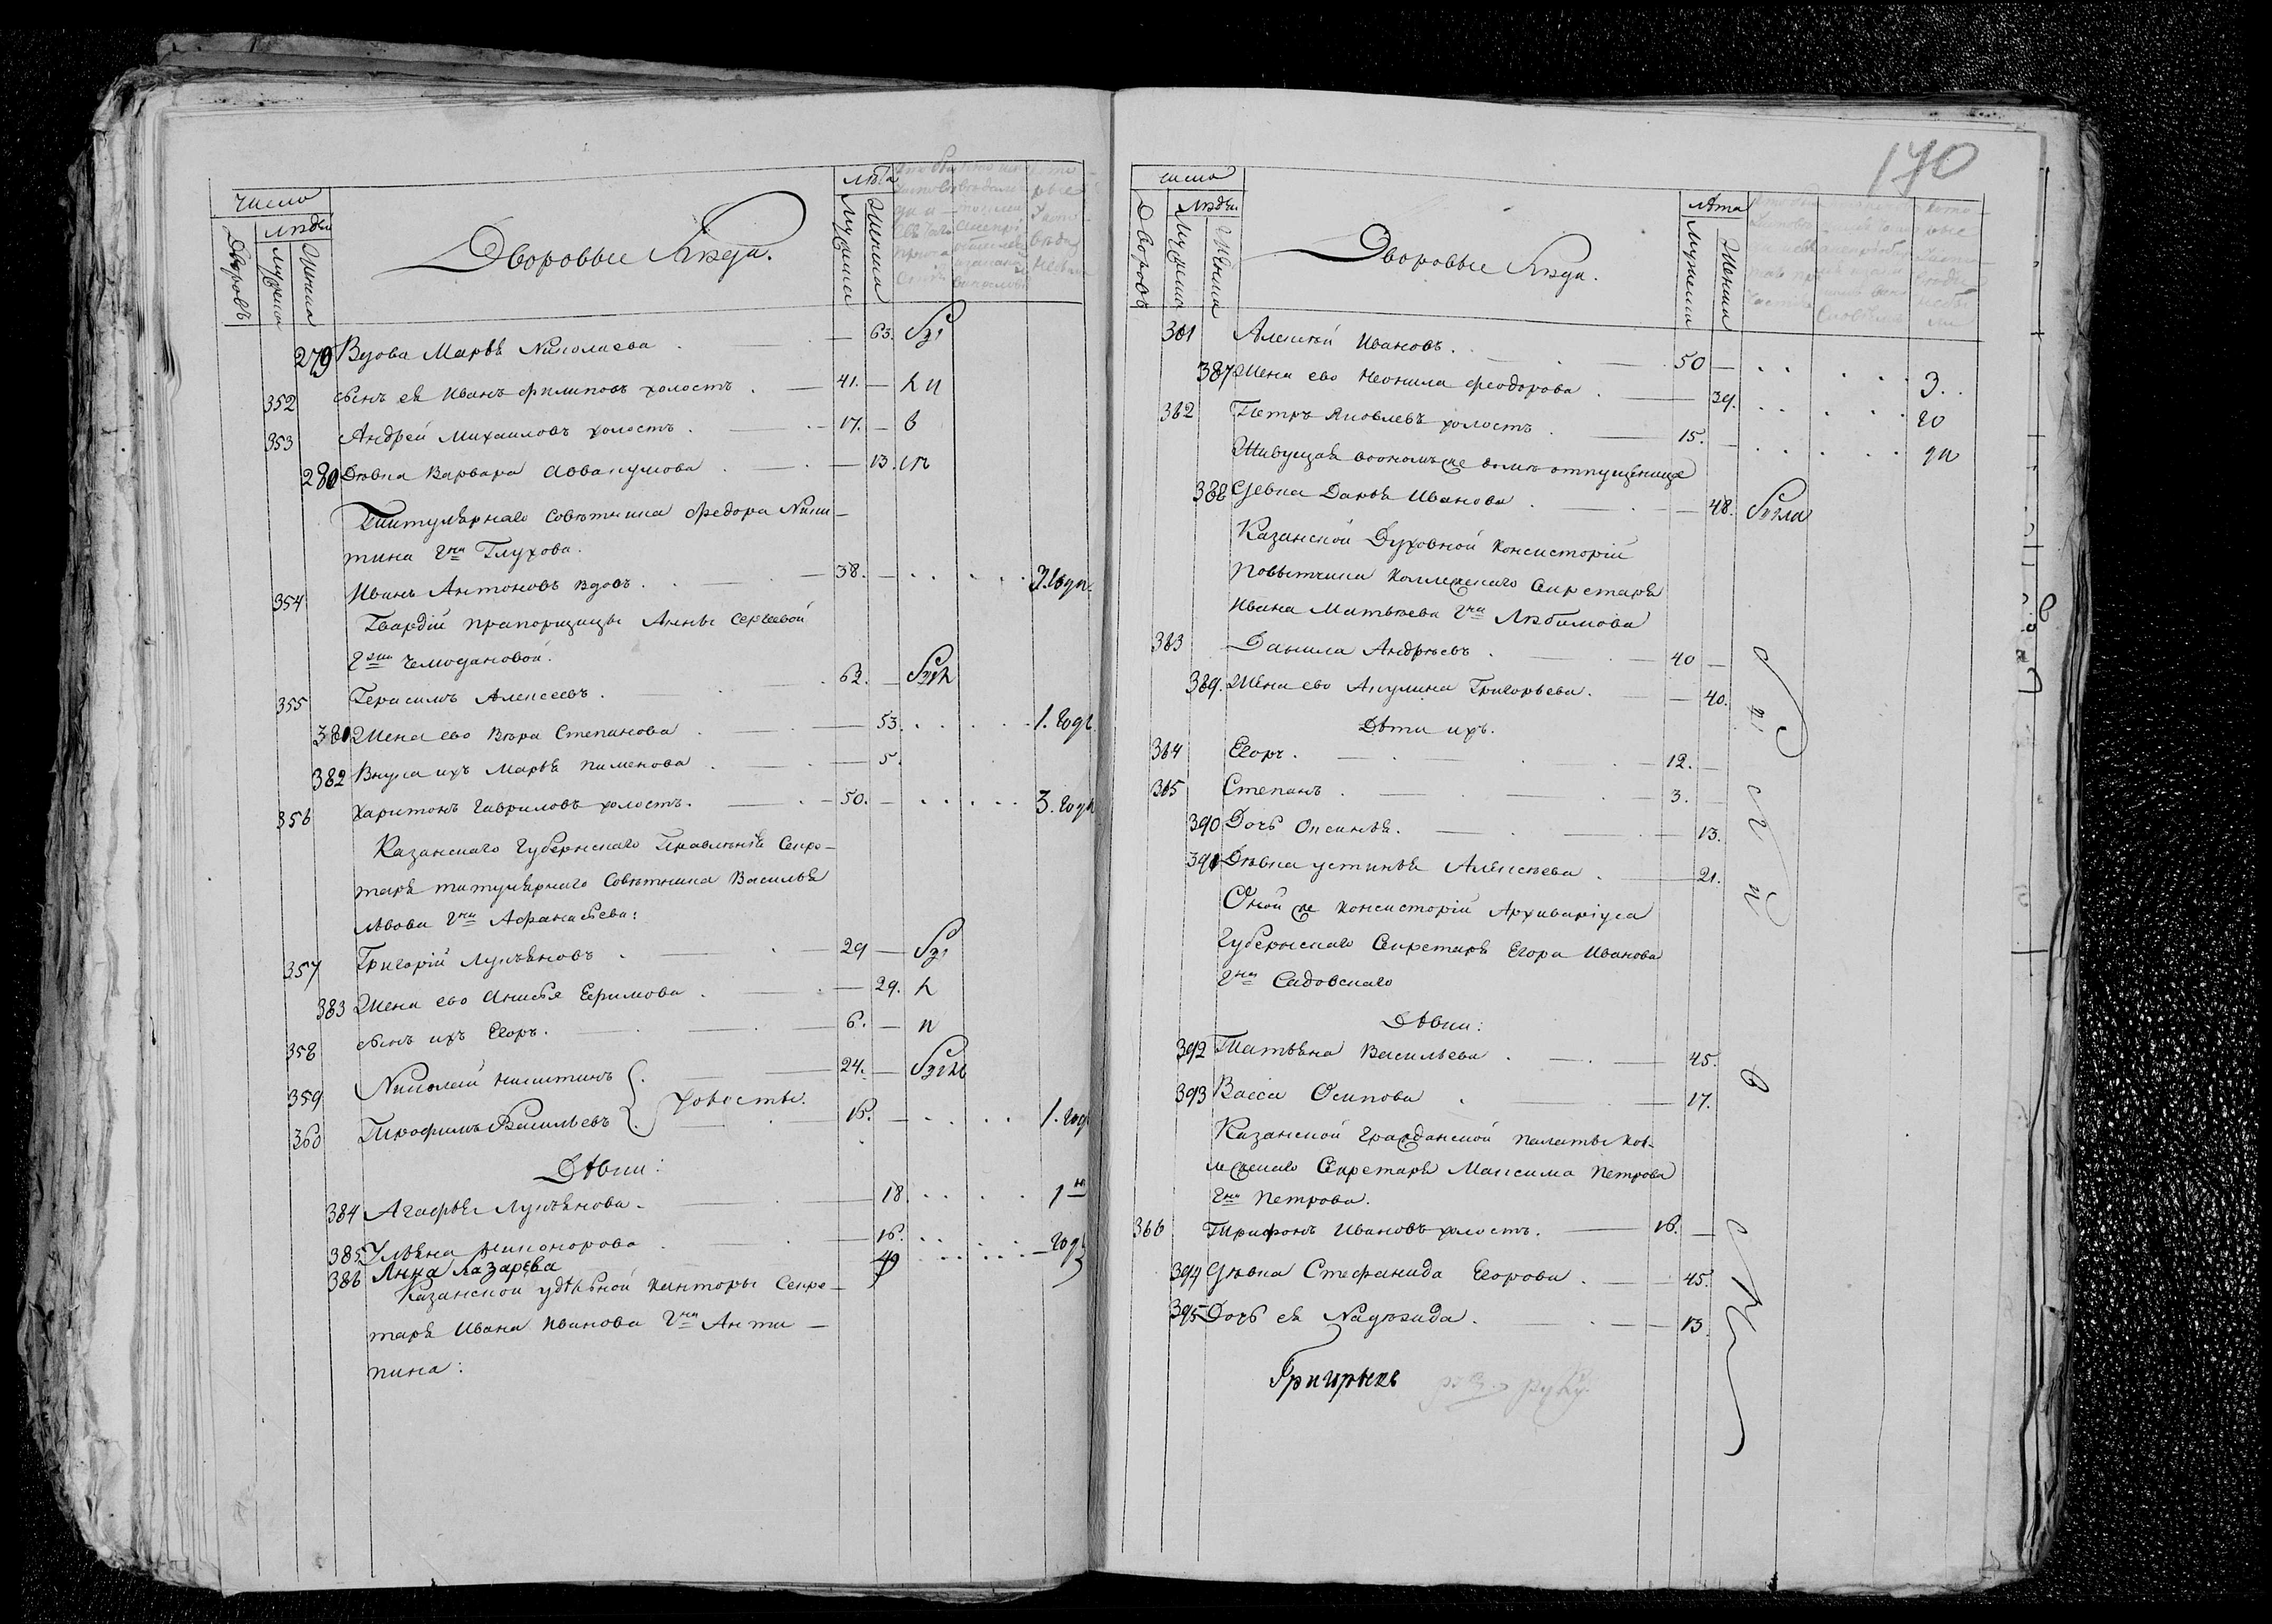 Число
Людей
Дворовъ
Мужеска
Женска
Дворовые Люди.
Лѣта
Мужеска
Женска
279 Вдова Марья Николаева — 63.
352 сынъ ея Иванъ Филиповъ холостъ . — 41. —
353 Андрей Михаиловъ холостъ . — 17. —
280 Дѣвка Варвара Аввакумова . — 13.
Титулярнаго Совѣтника Федора Ники-
тина Гна Глухова.
354 Иванъ Антоновъ вдовъ . — 38. — 3. года
Гвардіи прапорщицы Анны Сергѣевой
Гжи Чемодановой.
355 Герасимъ Алексеевъ . 62. —
381 Жена ево Вѣра Степанова . — 53. 1. годъ
382 Внука ихъ Марья Пименова . — 5.
356 Харитонъ Гавриловъ холостъ . — 50. — 3. года
Казанскаго Губернскаго Правленія Секре-
таря титулярнаго Совѣтника Василья
Львова Гна Афанасьева:
357 Григорій Лукъяновъ . — 29 —
383 Жена ево Анисья Ефимова . — 29.
358 сынъ ихъ Егоръ . — 6. —
359 Николай Никитинъ — 24. —
холосты.
360 Трофимъ Васильевъ — 16. — 1. годъ
Дѣвки:
384 Агафья Лукъянова . — 18. 1й
385 Ульяна Никонорова . — 16. годъ
386 Анна Лазарева 49
Казанской удѣльной Канторы Секре-
таря Ивана Иванова Гна Анти-
пина:
170
Число
Людей
Дворовъ
Мужеска
Женска
Дворовые Люди.
Лѣта
Мужеска
Женска
361 Алексѣй Ивановъ . — 50 — 3.
387 Жена ево Неонила Феодорова . — 39. го
362 Петръ Яковлевъ холостъ . — 15. — да
Живущая въ ономъ же домѣ отпущеница
388 Дѣвка Дарья Иванова . — 48.
Казанской Духовной Консисторіи
Повытчика Коллежскаго Секретаря
Ивана Матвѣева Гна Любимова
363 Данила Андрѣевъ . — 40 —
389. Жена ево Акулина Григорьева . — 40.
Дѣти ихъ.
364 Егоръ . — 12. —
365 Степанъ . — 3. —
390 Дочь Аксинья . — 13.
391 Дѣвка Устинья Алексѣева . — 21.
Оной же Консисторіи Архиваріуса
Губернскаго Секретаря Егора Иванова
Гна Садовскаго
Дѣвки:
392 Татьяна Васильева . — 45.
393 Васса Осипова . — 17.
Казанской Гражданской Палаты Кол-
лежскаго Секретаря Максима Петрова
Гна Петрова.
366 Трифонъ Ивановъ холостъ . — 16. —
394 Дѣвка Стефанида Егорова . — 45.
395 Дочь ея Надежида . — 13.
Григорьевъ руку.